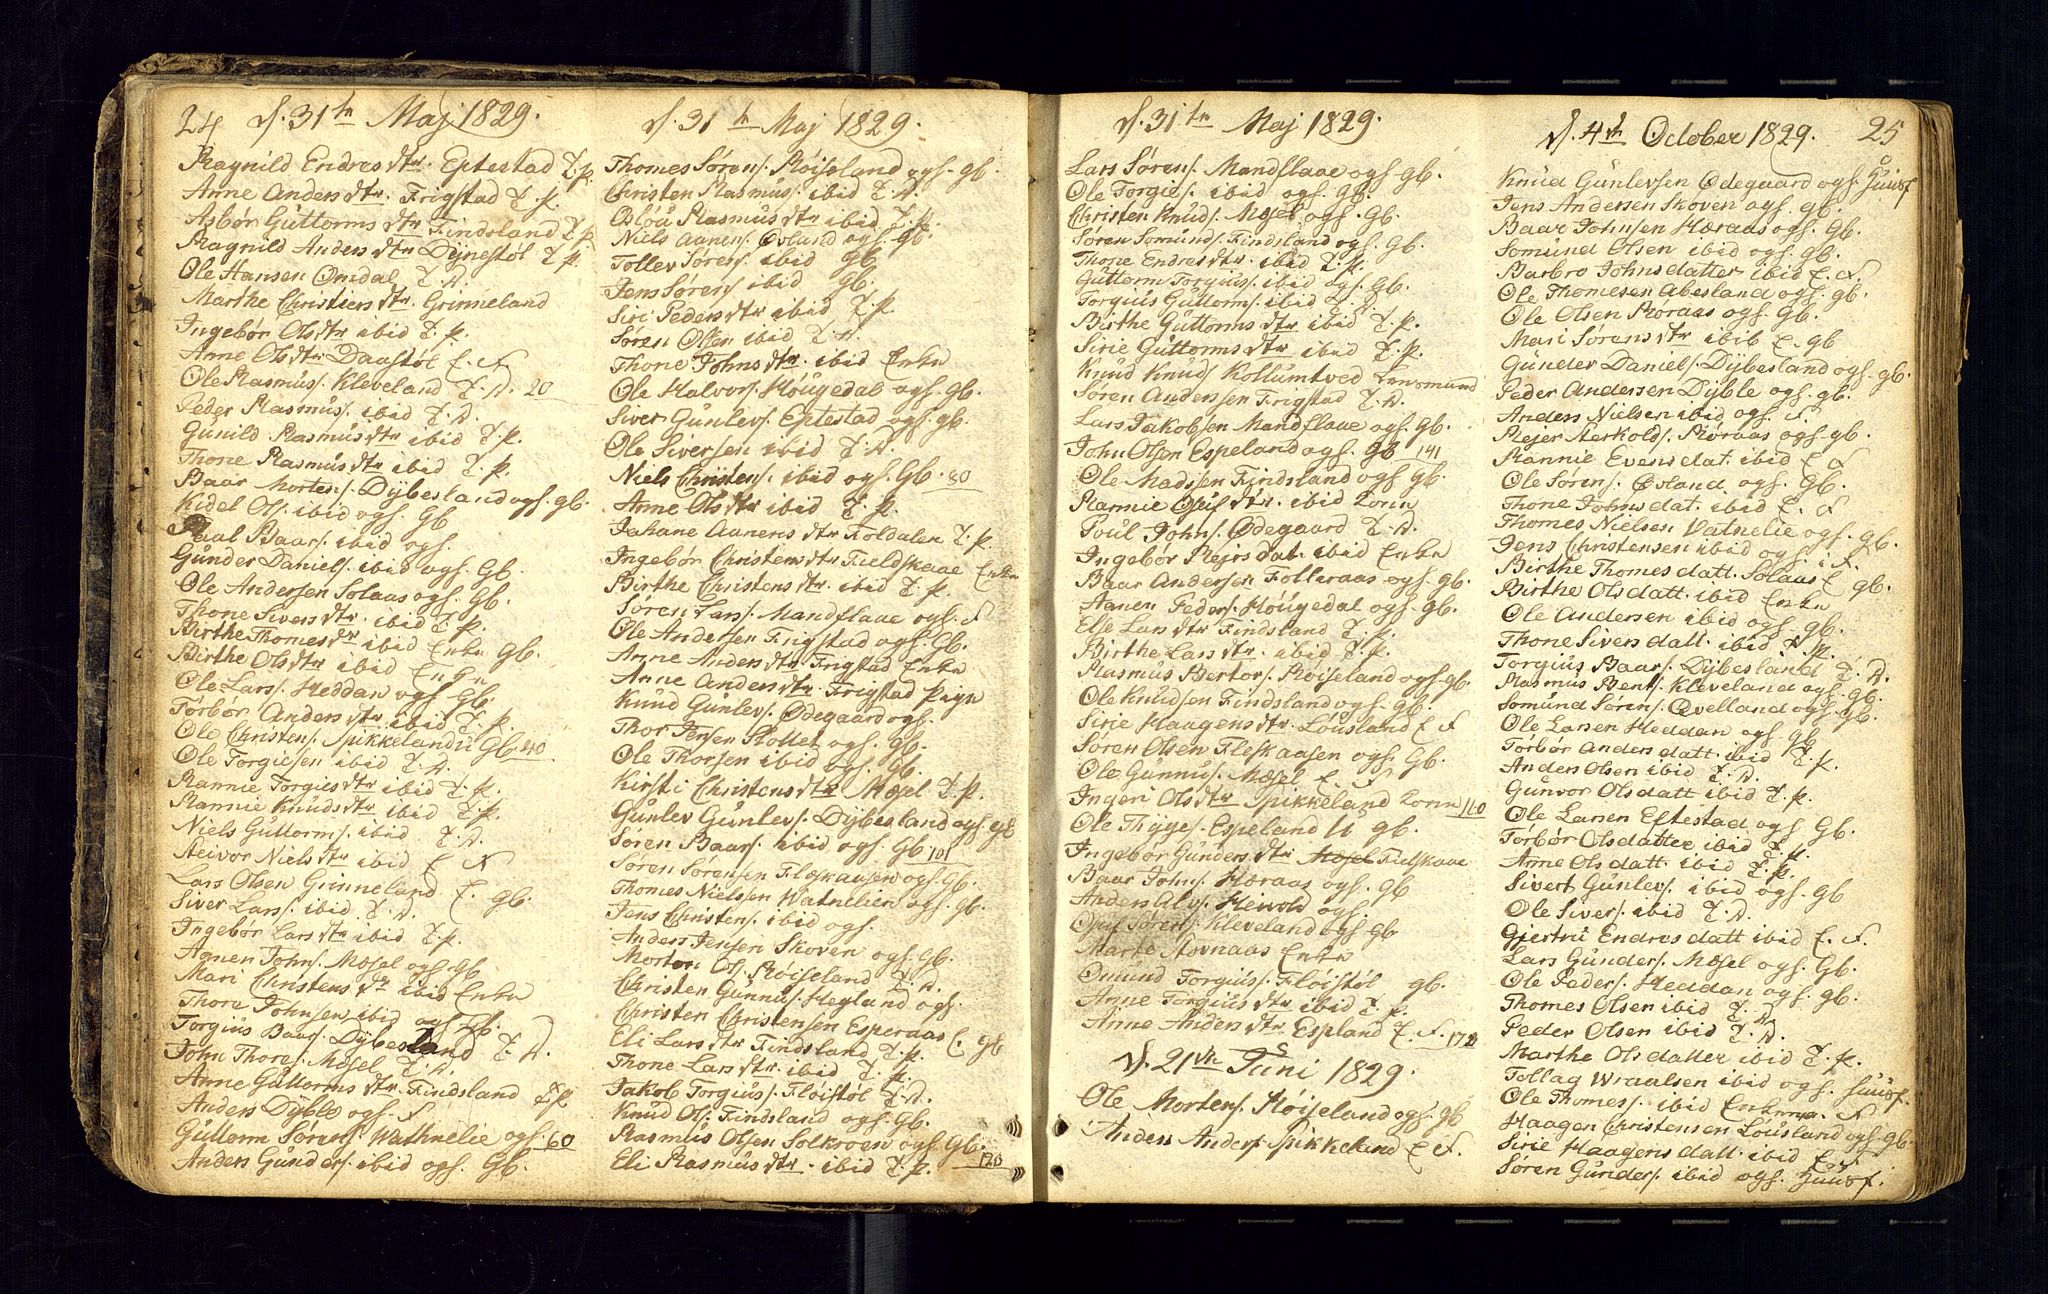 24 d. 31 te Maj 1829.
Ragnild Endresdtr. Eptestad T. p.
Anne Andersdtr. Frigstad T. p.
Asbør Guttormsdtr Findsland T. p.
Ragnild Andersdtr Dynestøl T. p.
Ole Hansen Omdal T. D.
Marthe Christensdtr. Grinneland
Ingebør Olsdtr ibid T. p.
Anne Olsdtr Daastøl E. F
Ole Rasmus. Kleveland T. D. 20
Peder Rasmus. ibid T. D.
Gunild Rasmusdtr ibid T. p.
Thone Rasmusdtr ibid T. p.
Baar Mortens. Dybesland ogs. gb.
Kidel Ols. ibid ogs. Gb
Paal Baars. ibid ogs.
Gunder Daniels. ibid ogs. Gb.
Ole Andersen Solaas ogs. Gb.
Thone Siversdtr. ibid T. p.
Birthe Thomesdtr ibid Enke gb.
Birthe Olsdtr ibid Enke
Ole Lars. Heddan ogs. Gb.
Tørbør Andersdtr ibid T. p.
Ole Christens. Spikkeland U Gb. 40
Ole Torgiesen ibid T. D.
Rannie Torgiesdtr ibid T. p.
Rannie Knudsdtr ibid T. p.
Niels Guttorms. ibid T. D.
Steivor Nielsdtr ibid E F
Lars Olsen Grinneland E. gb.
Siver Lars. ibid T. D.
Ingebør Larsdtr ibid T. p.
Agnen Johns. Møsel ogs. Gb
Mari Christensdtr ibid Enke
Thore Johnsen ibid ogs. Gb.
Torgius Baars. Dybesland T. D.
John Thores. Møsel T. D.
Anne Guttormsdtr. Findsland T. p
Anders Dyble ogs. F
Guttorm Sørens. Wathnelie ogs. 60
Anders Gunders. ibid ogs. Gb.
d. 31 te Maj 1829.
Thomes Sørens. Røiseland ogs. gb.
Christen Rasmus. ibid T. D.
Aslou Rasmusdtr ibid T. p.
Niels Aanens. Øvland ogs. gb.
Tollev Sørens. ibid gb
Jens Sørens ibid Gb.
Siri Pedersdtr ibid T. p.
Søren Olsen ibid T. D.
Thone Johnsdtr. ibid Enke
Ole Halvors. Høugedal ogs. gb.
Siver Gunlevs. Eptestad ogs. gb.
Ole Siversen ibid T. D.
Niels Christens. ibid ogs. Gb. 80
Anne Olsdtr ibid T. p.
Jahane Aanensdtr Koldalen T. p.
Ingebør Christensdtr Fieldskaae Enke
Birthe Christensdtr. ibid T. p.
Søren Lars. Mandflaae ogs. F
Ole Andersen Frigstad ogs. Gb.
Anne Andersdtr Frigstad Enke
Anne Andersdtr. Frigstad Pige
Knud Gunlevs. Ødegaard ogs.
Thor Jensen Stottet ogs. gb.
Ole Thorsen ibid ogs. Gb.
Kirsti Christensdtr Møsel T. p.
Gunlev Gunlevs. Dybesland ogs. gb
Søren Baars. ibid ogs. Gb 101
Søren Sørensen Fleskaasen ogs. Gb.
Thomes Nielsen Watnelien ogs. gb.
Jens Christens. ibid ogs.
Anders Jensen Skoven ogs. Gb.
Morten Ols. Røiseland T. D.
Christen Gunnus. Hegland ogs.
Christen Christensen Esperaas E. gb
Eli Larsdtr Findsland T. p.
Thone Larsdtr. ibid T. p.
Jakob Torgius. Fløistøl T. D.
Knud Ols. Findsland ogs. Gb.
Rasmus Olsen Solkroen ogs. Gb.
Eli Rasmusdtr. ibid T. p. 120
d. 31 te Maj 1829.
Lars Sørens. Mandflaae ogs. gb.
Ole Torgies. ibid ogs. Gb.
Christen Knuds. Møsel ogs. Gb.
Søren Somunds. Findsland ogs. Gb.
Thone Endresdtr. ibid T. p.
Guttorm Torgius. ibid ogs. Gb.
Torgius Guttorms. ibid T. D.
Birthe Guttormsdtr ibid T. p.
Sirie Guttormsdtr ibid T. p.
Knud Knuds Kollumtved Lensmand
Søren Andersen Frigstad T. D.
Lars Jakobsen Mandflaae ogs. Gb.
John Olsen Espeland ogs. Gb 141
Ole Madssen Findsland ogs Gb.
Rannie Olufsdtr. ibid Kone
Poul Johns. Ødegaard T. D.
Ingebør Rejersdat. ibid Enke
Baar Andersen Folleraas ogs. gb.
Aanen Peders. Høugedal ogs. gb.
Elle Larsdtr Findsland T. p.
Birthe Larsdtr. ibid T. p.
Rasmus Bertors. Røiseland ogs. gb.
Ole Knudsen Findsland ogs. Gb.
Sirie Haagensdtr. Løusland E F
Søren Olsen Fleskaasen ogs. Gb.
Ole Gunnus. Møsel E. F
Ingeri Olsdtr Spikkeland Kone 160
Ole Thyges. Espeland U gb.
Ingebør Gundersdtr Møsel Fielskaae
Baar Johns. Hæraas ogs. Gb
Anders Alvs. Heivold ogs.
Oluf Sørens. Kleveland ogs. gb
Marte Stovnaas Enke
Omund Torgius. Fløistøl gb.
Anne Torgiusdtr ibid T. p.
Anne Andersdtr Espland E. F. 170
d. 21 de Juni 1829.
Ole Mortens. Røiseland ogs. gb
Anders Anders. Spikkeland E F.
d. 4 de October 1829. 25
Knud Gunlevsen Ødegaard ogs. Huusf
Jens Andersen Skoven ogs. gb.
Baar Johnsen Hæraas ogs. Gb.
Somund Olsen ibid ogs. Gb.
Barbro Johnsdatter ibid E. F
Ole Thomesen Abesland ogs. gb.
Ole Olsen Røraas ogs. Gb.
Mari Sørensdtr ibid E. gb
Gunder Daniels. Dybesland ogs. gb.
Peder Andersen Dyble ogs. gb.
Anders Nielsen ibid ogs. F
Rejer Terkolds. Røraas ogs. gb.
Rannie Evensdat. ibid E F
Ole Sørens. Øvland ogs. Gb.
Thone Johnsdat. ibid E. F
Thomes Nielsen Vatnelie ogs. gb.
Jens Christensen ibid ogs. F.
Birthe Thomesdatt. Solaas E gb.
Birthe Olsdatt. ibid Enke
Ole Andersen ibid ogs. gb.
Thone Siversdatt. ibid T. p.
Torgius Baars. Dybesland T. D.
Rasmus Bents. Kleveland ogs. gb.
Somund Sørens. Qvelland ogs. gb.
Ole Larsen Heddan ogs. gb
Tørbør Andersdatt ibid T. p.
Anders Olsen ibid T. D.
Gunvor Olsdatt ibid T. p.
Ole Larsen Eftestad ogs Gb.
Tørbør Olsdatter ibid T. p.
Anne Olsdatt. ibid T. p.
Sivert Gunlevs. ibid ogs. gb
Ole Sivers. ibid T. D.
Gjertru Endresdatt ibid E. F.
Lars Gunders. Møsel ogs. Gb.
Ole Peders. Heddan ogs. gb.
Thomes Olsen ibid T. D
Peder Olsen ibid T. D.
Marthe Olsdatter ibid T. p.
Tollag Wraalsen ibid ogs. Huusf.
Ole Thomes. ibid Enkem. F
Haagen Christensen Løusland ogs. gb.
Sirie Haagensdatt. ibid E. F.
Søren Gunders. ibid ogs. Huusf.